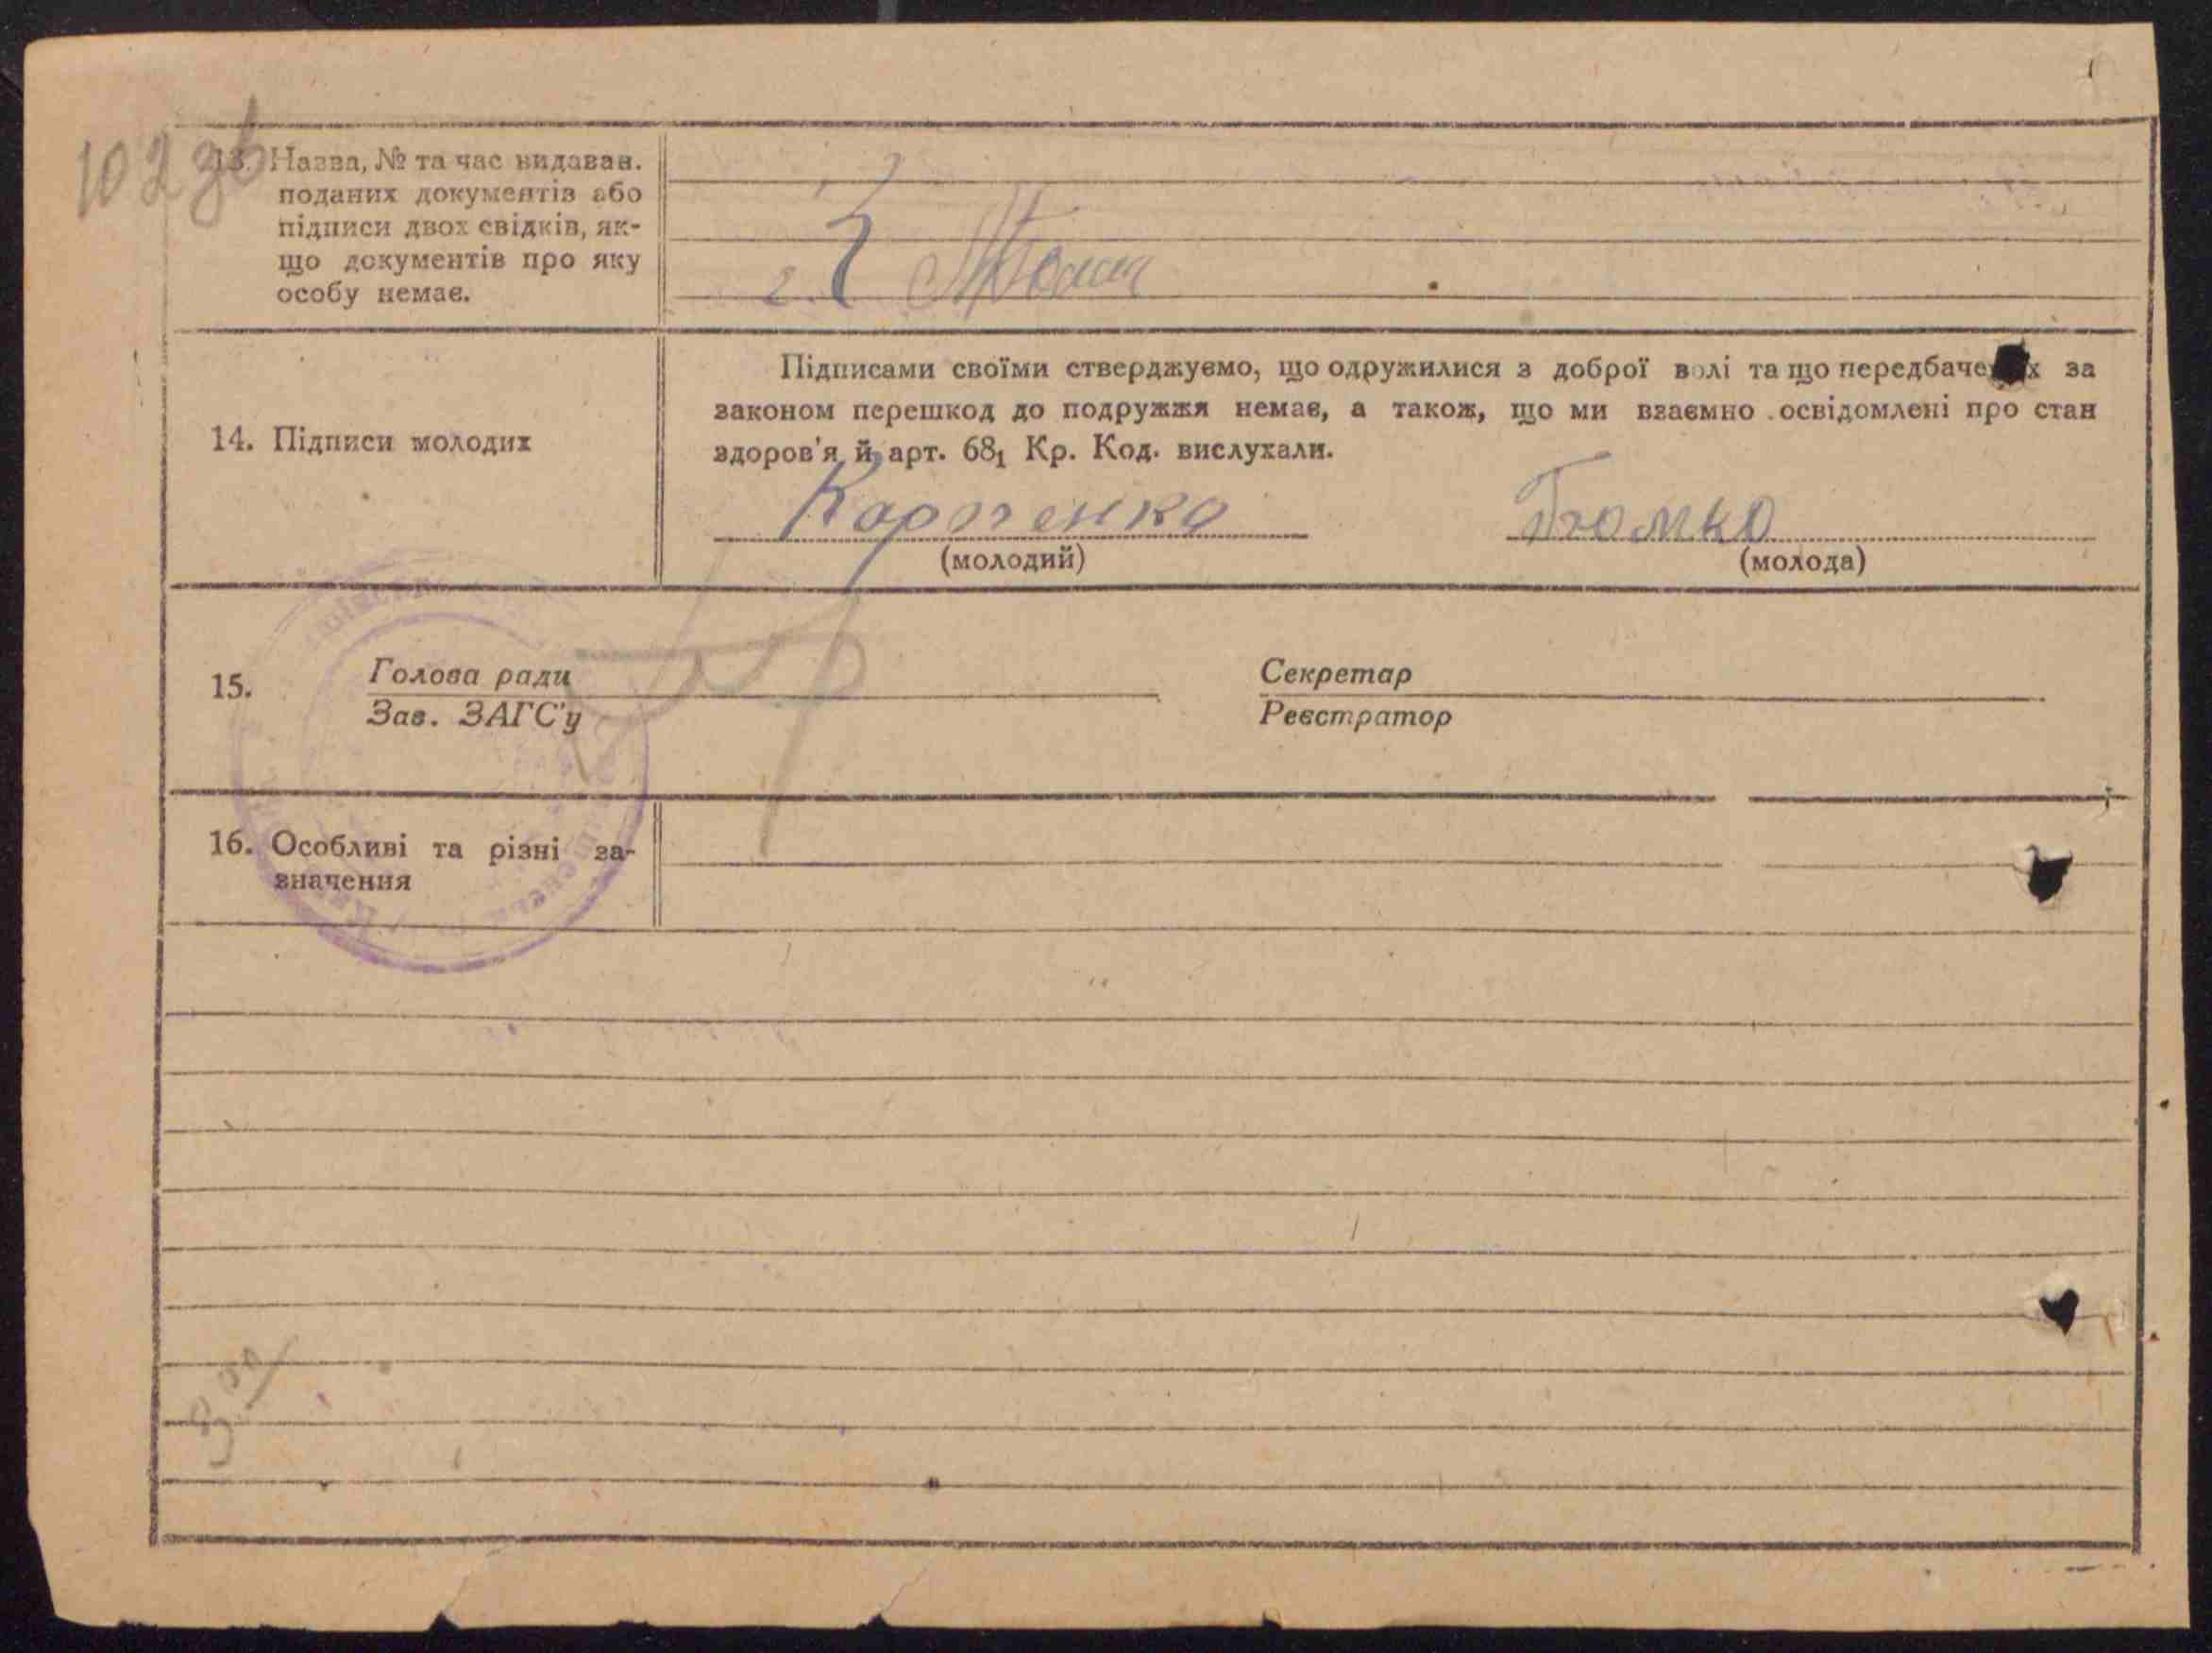 102 зв
13. Назва, № та час видаван.
поданих документів або
підписи двох свідків, як-
що документів про яку
особу немає.
2.
14. Підписи молодих
Підписами своїми стверджуємо, що одружилися з доброї волі та що за
законом перешкод до подружжя немає, а також, що ми взаємно освідомлені про стан
здоров'я й арт. 68₁ Кр. Код. вислухали.
Карпенко
(молодий)
(молода)
15.
Голова ради
Зав. ЗАГС'у
Секретар
Реєстратор
16. Особливі та різні за-
значення